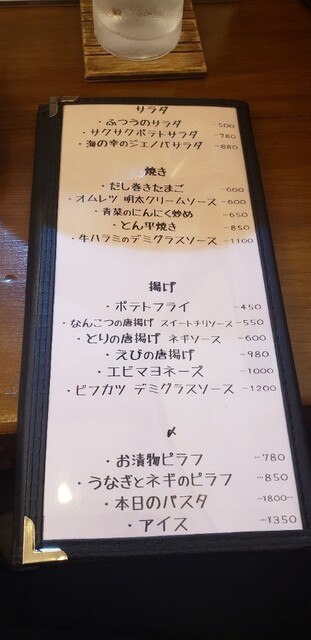 サラダ
・ふつうのサラダ -500
・サクサクポテトサラダ -780
・海の幸のジェノバサラダ -880
焼き
・だし巻きたまご -600
・オムレツ 明太クリームソース -600
・青菜のにんにく炒め -650
・とん平焼き -850
・牛ハラミのデミグラスソース -1100
揚げ
・ポテトフライ -450
・なんこつの唐揚げ スイートチリソース -550
・とりの唐揚げ ネギソース -600
・えびの唐揚げ -980
・エビマヨネーズ -1000
・ビフカツ デミグラスソース -1200
〆
・お漬物ピラフ …780
・うなぎとネギのピラフ …850
・本日のパスタ …¥800~
・アイス …¥350